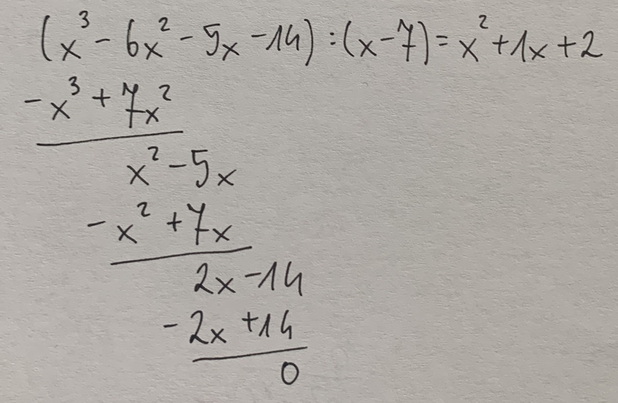 (x³ - 6x² - 5x - 14) : (x - 7) = x² + 1x + 2
- x³ + 7x²
x² - 5x
- x² + 7x
2x - 14
- 2x + 14
0